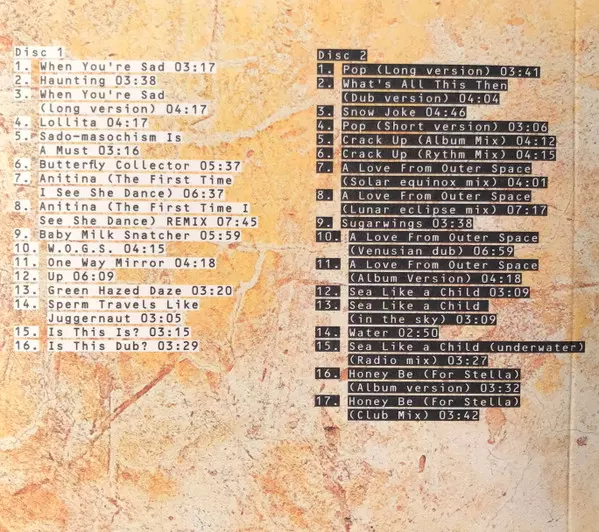 Disc 1
1. When You're Sad 03:17
2. Haunting 03:38
3. When You're Sad
(long version) 04:17
4. Lollita 04:17
5. Sado-masochism Is
A Must 03:16
6. Butterfly Collector 05:37
7. Anitina (The First Time
I See She Dance) 06:37
8. Anitina (The First Time I
See She Dance) REMIX 07:45
9. Baby Milk Snatcher 05:59
10. W.O.G.S. 04:15
11. One Way Mirror 04:18
12. Up 06:09
13. Green Hazed Daze 03:20
14. Sperm Travels Like
Juggernaut 03:05
15. Is This Is? 03:15
16. Is This Dub? 03:29
Disc 2
1. Pop (Long version) 03:41
2. What's All This Then
(Dub version) 04:04
3. Snow Joke 04:46
4. Pop (Short version) 03:06
5. Crack Up (Album Mix) 04:12
6. Crack Up (Rythm Mix) 04:15
7. A Love From Outer Space
(Solar equinox mix) 04:01
8. A Love From Outer Space
(Lunar eclipse mix) 07:17
9. Sugarwings 03:38
10. A Love From Outer Space
(Venusian dub) 06:59
11. A Love From Outer Space
(Album Version) 04:18
12. Sea Like a Child 03:09
13. Sea Like a Child
(in the sky) 03:09
14. Water 02:50
15. Sea Like a Child (underwater)
(Radio mix) 03:27
16. Honey Be (For Stella)
(Album version) 03:32
17. Honey Be (For Stella)
(Club Mix) 03:42